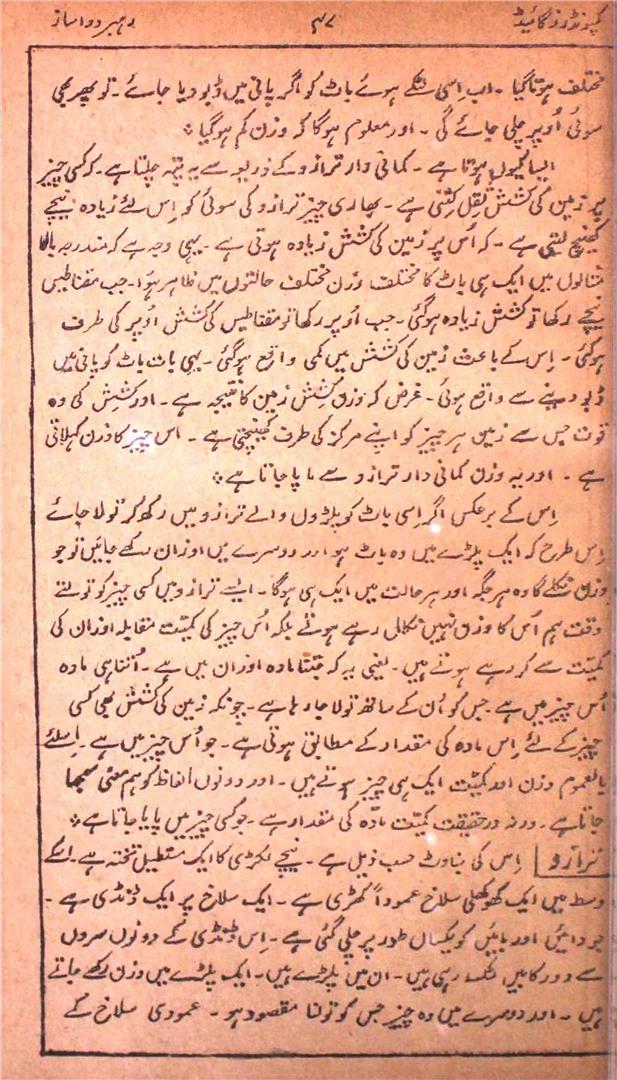 کمپونڈرز گائیڈ ۳۷ رہبر دواساز
مختلف ہوتا گیا ۔ اب اسی لٹکے ہوئے باٹ کو اگر پانی میں ڈبو دیا جائے ۔ تو پھر بھی
سوئی اُوپر چلی جائے گی ۔ اور معلوم ہوگا کہ وزن کم ہوگیا
ایسا کیوں ہوتا ہے ۔ کمانی دار ترازو کے ذریعہ سے یہ پتہ چلتا ہے ۔ کہ کسی چیز
پر زمین کی کشش ثقل کتنی ہے ۔ بھاری چیز ترازو کی سوئی کو اِس لئے زیادہ نیچے
کھینچ لیتی ہے ۔ کہ اُس پر زمین کی کشش زیادہ ہوتی ہے ۔ یہی وجہ ہے کہ مندرجہ بالا
مثالوں میں ایک ہی باٹ کا مختلف وزن مختلف حالتوں میں ظاہر ہوا ۔ جب مقناطیس
نیچے رکھا تو کشش زیادہ ہوگئی ۔ جب اُوپر رکھا تو مقناطیس کی کشش اُوپر کی طرف
ہوگئی ۔ اِس کے باعث زمین کی کشش میں کمی واقع ہوگئی ۔ یہی بات باٹ کو پانی میں
ڈبو دینے سے واقع ہوئی ۔ غرض کہ وزن کشش زمین کا نتیجہ ہے ۔ اور کشش کی وہ
قوت جس سے زمین ہر چیز کو اپنے مرکز کی طرف کھینچتی ہے ۔ اس چیز کا وزن کہلاتی
ہے ۔ اور یہ وزن کمانی دار ترازو سے ماپا جاتا ہے
اِس کے برعکس اگر اِسی باٹ کو پلڑوں والے ترازو میں رکھ کر تولا جائے
اِس طرح کہ ایک پلڑے میں وہ باٹ ہو اور دوسرے میں اوزان رکھے جائیں تو جو
وزن نکلے گا وہ ہر جگہ اور ہر حالت میں ایک ہی ہوگا ۔ ایسے ترازو میں کسی چیز کو تولتے
وقت ہم اُس کا وزن نہیں نکال رہے ہوتے بلکہ اُس چیز کی کمیّت مقابلہ اوزان کی
کمیّت سے کر رہے ہوتے ہیں ۔ یعنی یہ کہ جتنا مادہ اوزان میں ہے ۔ اُتنا ہی مادہ
اُس چیز میں ہے ۔ جس کو اُن کے ساتھ تولا جا رہا ہے ۔ چونکہ زمین کی کشش بھی کسی
چیز کے لئے اِس مادہ کی مقدار کے مطابق ہوتی ہے ۔ جو اُس چیز میں ہے ۔ اِسلئے
بالعموم وزن اور کمیّت ایک ہی چیز ہوتے ہیں ۔ اور دونوں الفاظ کو ہم معنی سمجھا
جاتا ہے ۔ ورنہ درحقیقت کمیّت مادّہ کی مقدار ہے ۔ جو کسی چیز میں پایا جاتا ہے
ترازو اِس کی بناوٹ حسب ذیل ہے ۔ نیچے لکڑی کا ایک مستطیل تختہ ہے ۔ اسکے
وسط میں ایک کھوکھلی سلاخ عموداً کھڑی ہے ۔ ایک سلاخ پر ایک ڈنڈی ہے ۔
جو دائیں اور بائیں کو یکساں طور پر چلی گئی ہے ۔ اِس ڈنڈی کے دونوں سروں
سے دو رکابیں لٹک رہی ہیں ۔ ان میں پلڑے ہیں ۔ ایک پلڑے میں وزن رکھے جاتے
ہیں ۔ اور دوسرے میں وہ چیز جس کو تولنا مقصود ہو ۔ عمودی سلاخ کے